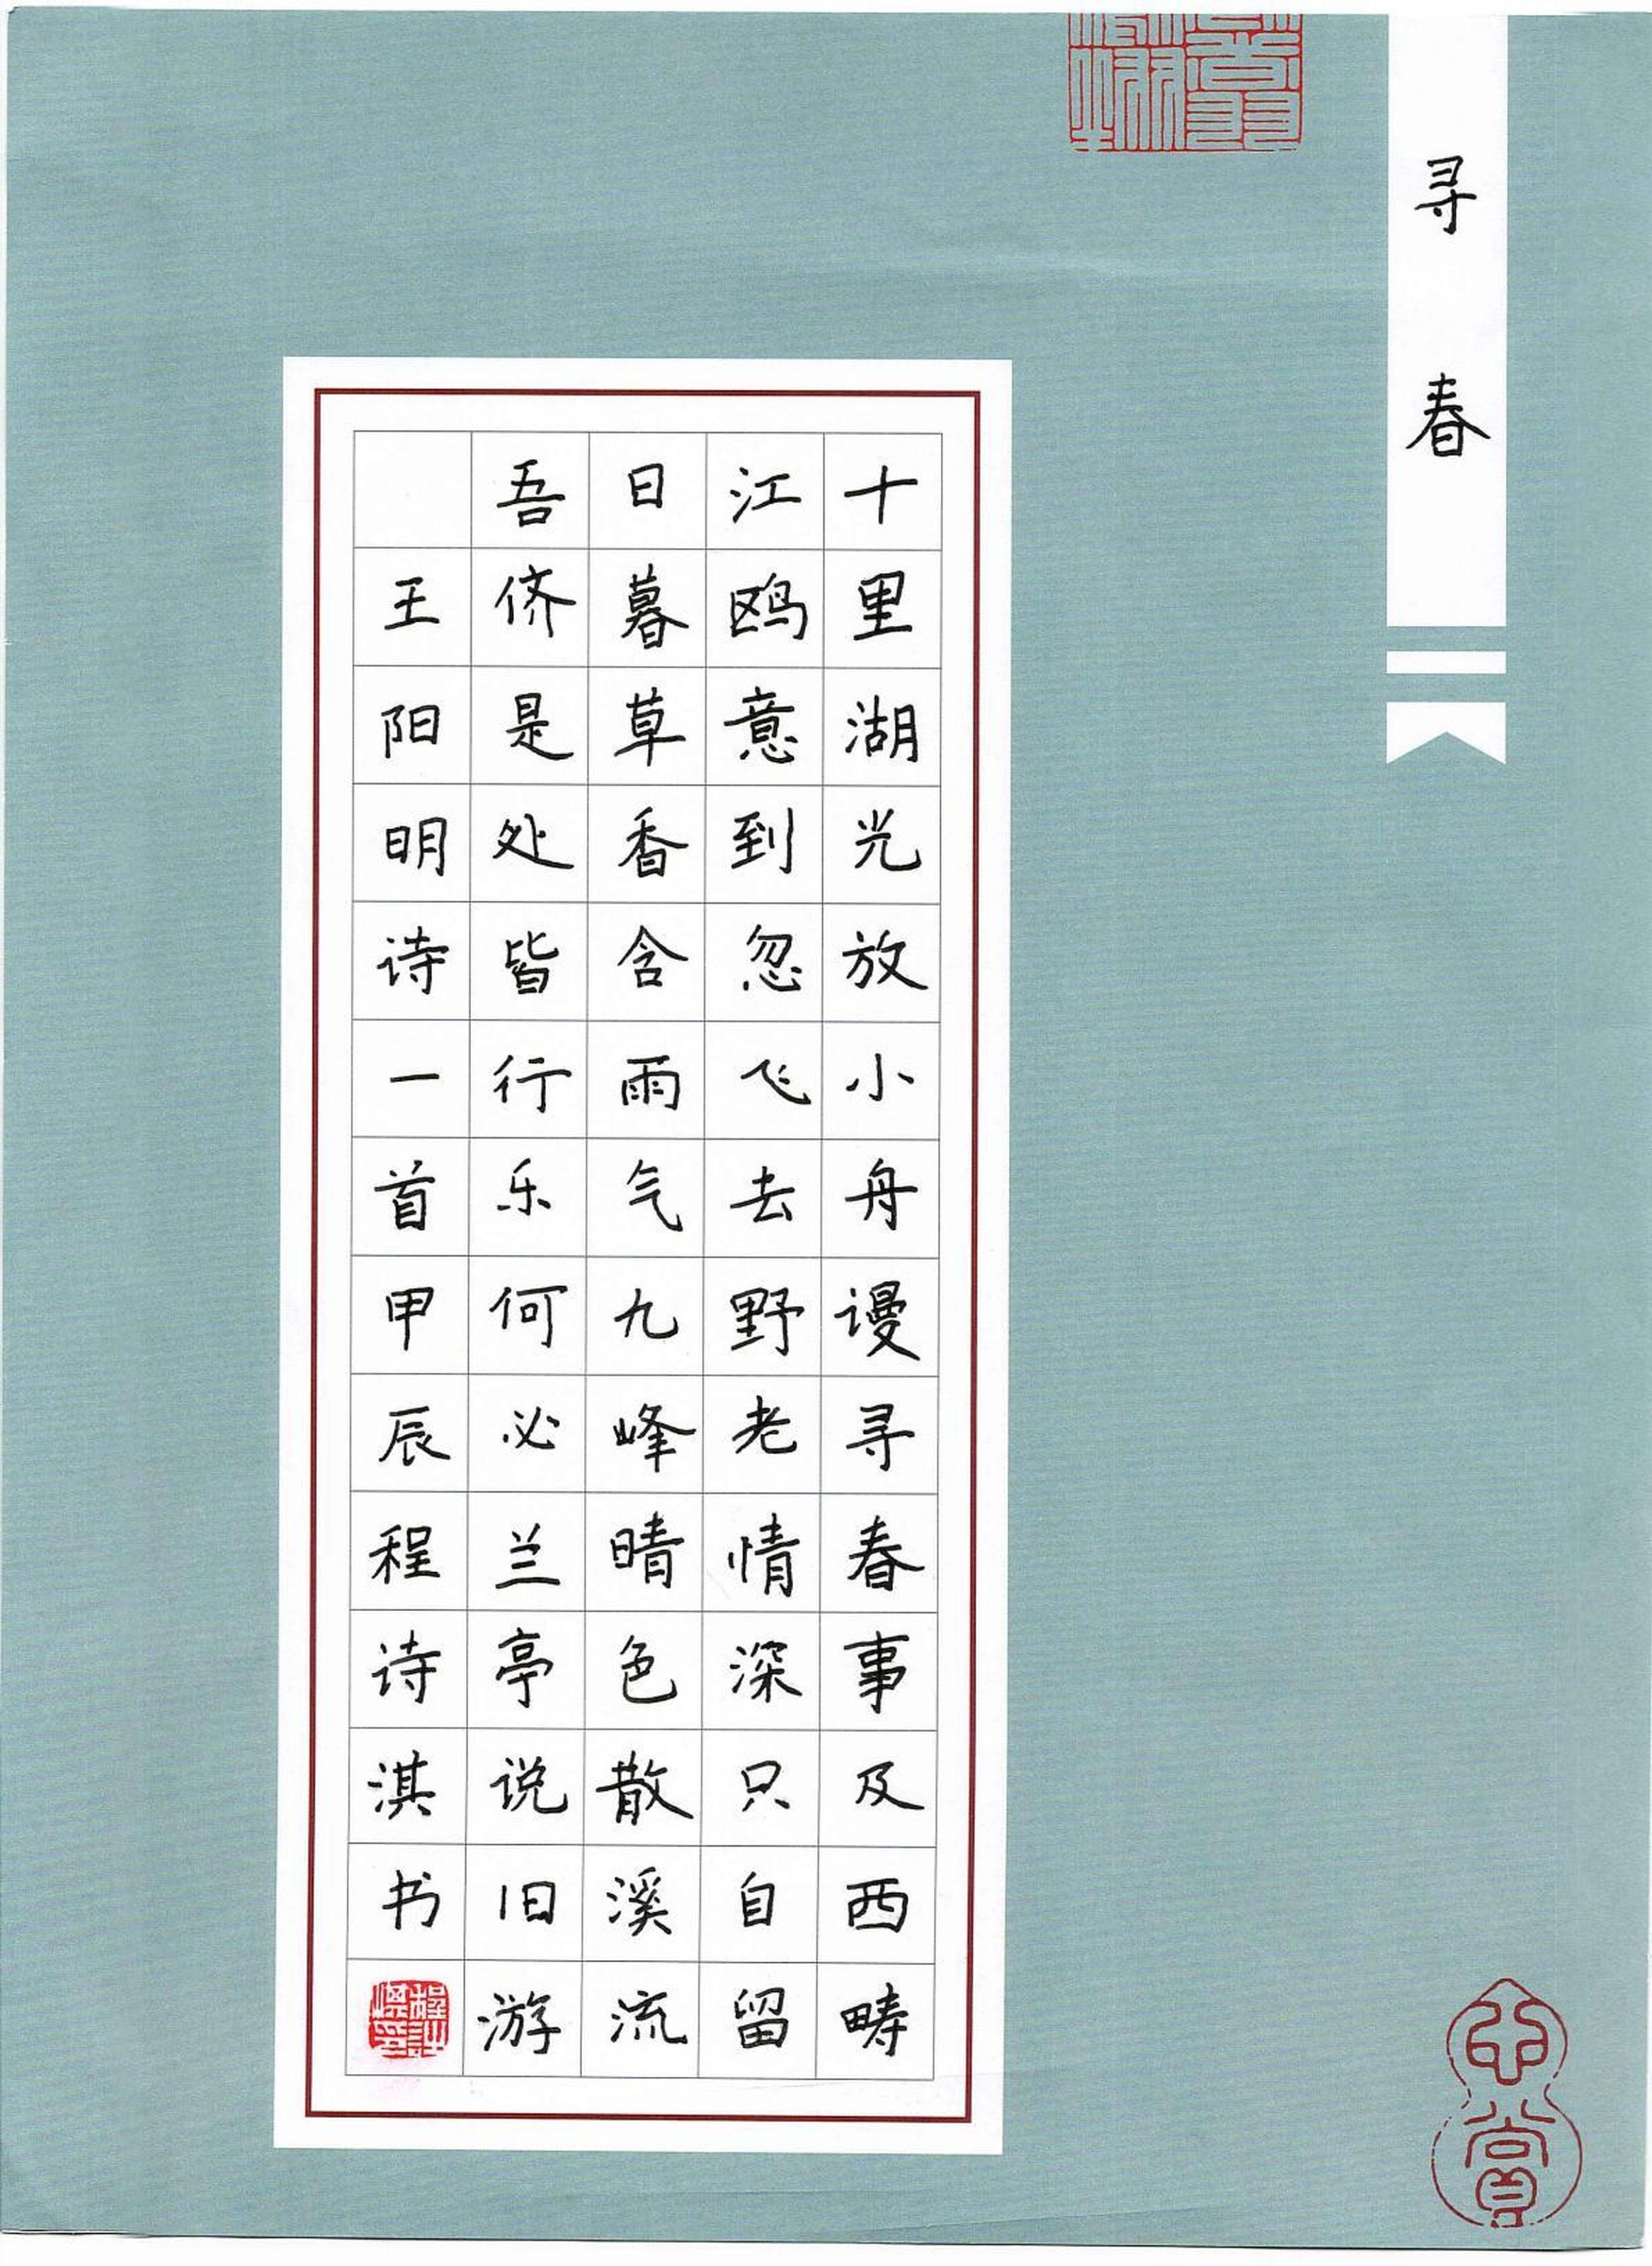 寻春
十里湖光放小舟谩寻春事及西畴
江鸥意到忽飞去野老情深只自留
日暮草香含雨气九峰晴色散溪流
吾侪是处皆行乐何必兰亭说旧游
王阳明诗一首甲辰程诗淇书